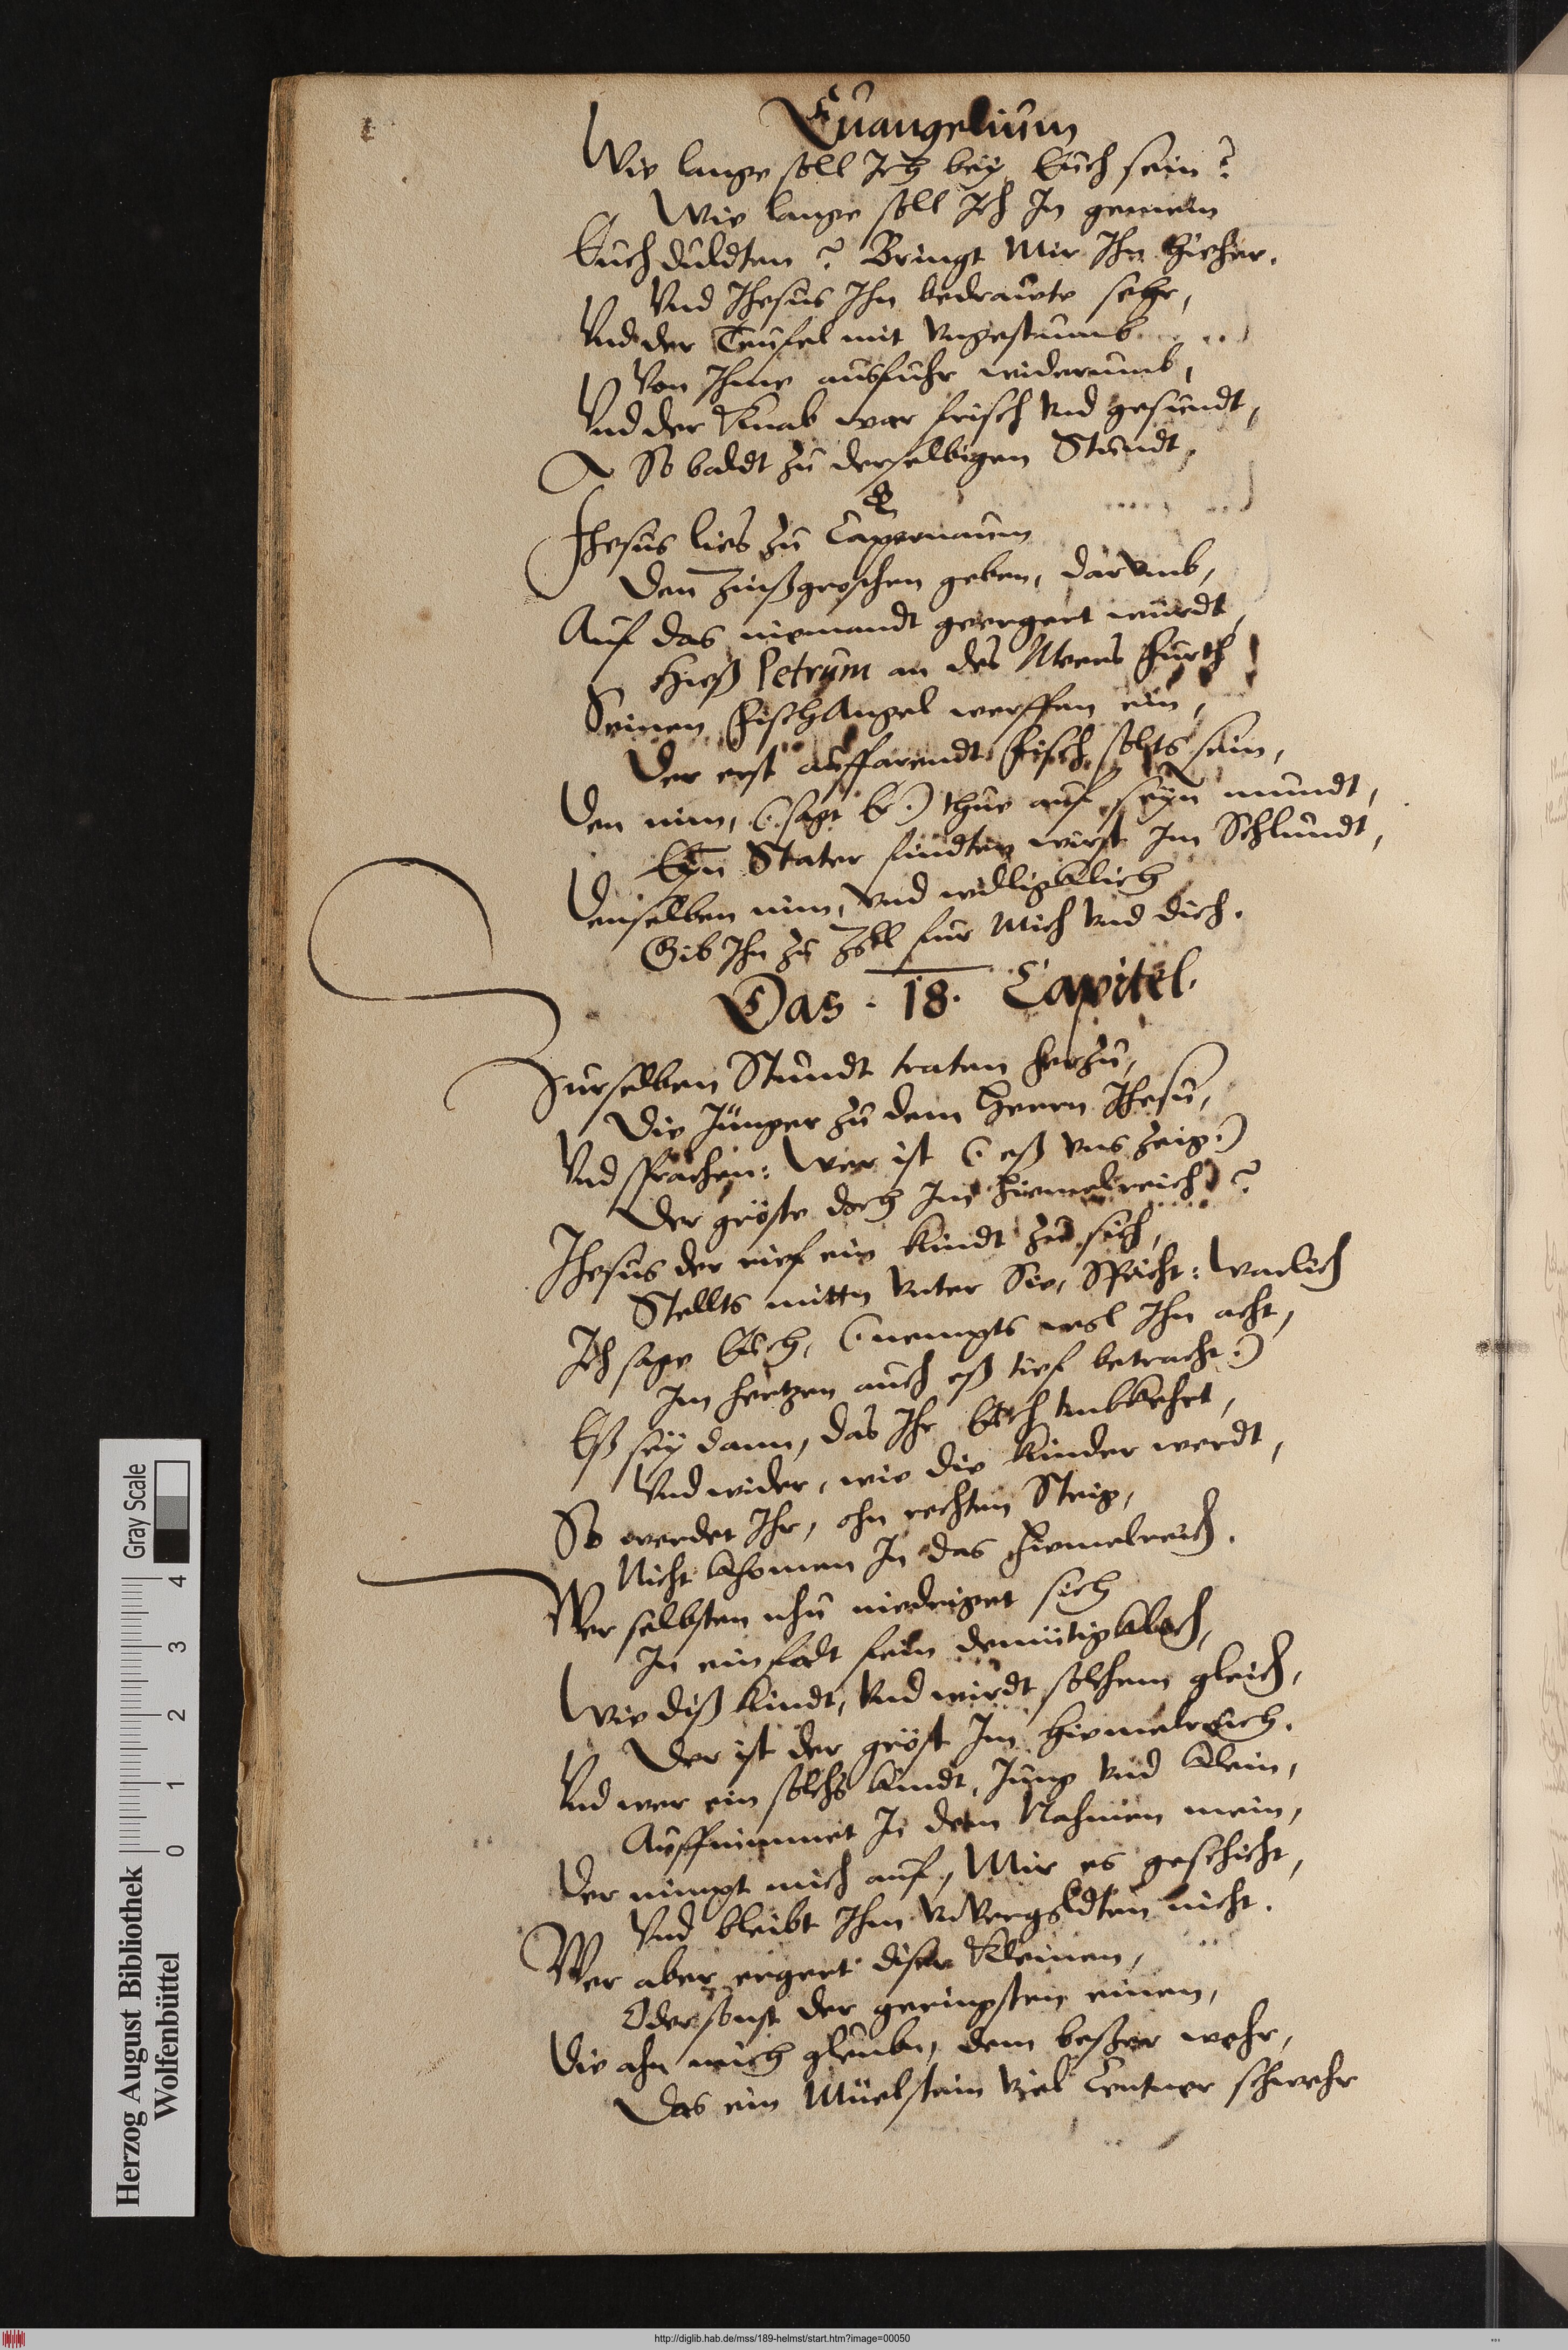 Euangelium
Wie lange soll Ich bey Euch sein?
Wie lange soll Ich In gemein
Euch duldten? Bringt Mir Ihn hieher.
Vnd Jhesus Ihn bedrawte sehr,
Vnd der Teufel mit Vngestumb
Von Ihme ausfuhr widerumb,
Vnd der Knab war frisch Vnd gesundt,
So baldt zu derselbigen Stundt,
Jhesus lies zu Capernaum
Den Zinßgroschen geben, darVmb,
Auf das niemandt geergert wurdt,
Hieß Petrum an des Meers Furth
Seinen FischAngel werffen ein,
Der erst auffarendt Fisch, solts sein,
Den nim, (sagt Er) thue auf seyn mundt,
Eyn Stater findten wirst Im Schlundt,
Denselben nim, Vnd williglich
Gib Ihn zu Zoll fur Mich Vnd dich.
Das . 18. Capitel.
Zurselben Stundt traten herzu,
Die Jünger zu dem Herrn Jhesu,
Vnd sprachen: Wer ist (eß vns zeig:)
Der gröste doch Im Himelreich?
Jhesus der rief ein Kindt zu sich,
Stellts mittn Vnter Sie, Spricht: Warlich
Ich sage Euch, (nempts wol Ihn acht,
Im hertzen auch eß tief betracht:)
Eß sey dann, das Ihr Euch Vmbkehrt,
Vnd wider, wie die Kinder werdt,
So werdet Ihr, ohn rechten Steig,
Nicht khomen In das Himelreich.
Wer selbsten nhu niedriget sich
In einfalt fein demütigklich,
Wie diß Kindt, Vnd wirdt solchem gleich,
Der ist der gröst Im Himelreich.
Vnd wer ein solchs Kindt, Jung Vnd klein,
Auffnimmet In dem Nahmen mein,
Der nimpt mich auf, Mir es geschicht,
Vnd bleibt Ihm VnVergoldten nicht.
Wer aber ergert diser Kleinen,
Oder sonst der geringsten einen,
Die ahn mich gleuben, dem beßer wehr,
Das ein Müelstein Viel Centner schwehr
Herzog August Bibliothek
Wolfenbüttel
0 1 2 3 4
Gray Scale
http://diglib.hab.de/mss/189-helmst/start.htm?image=00050